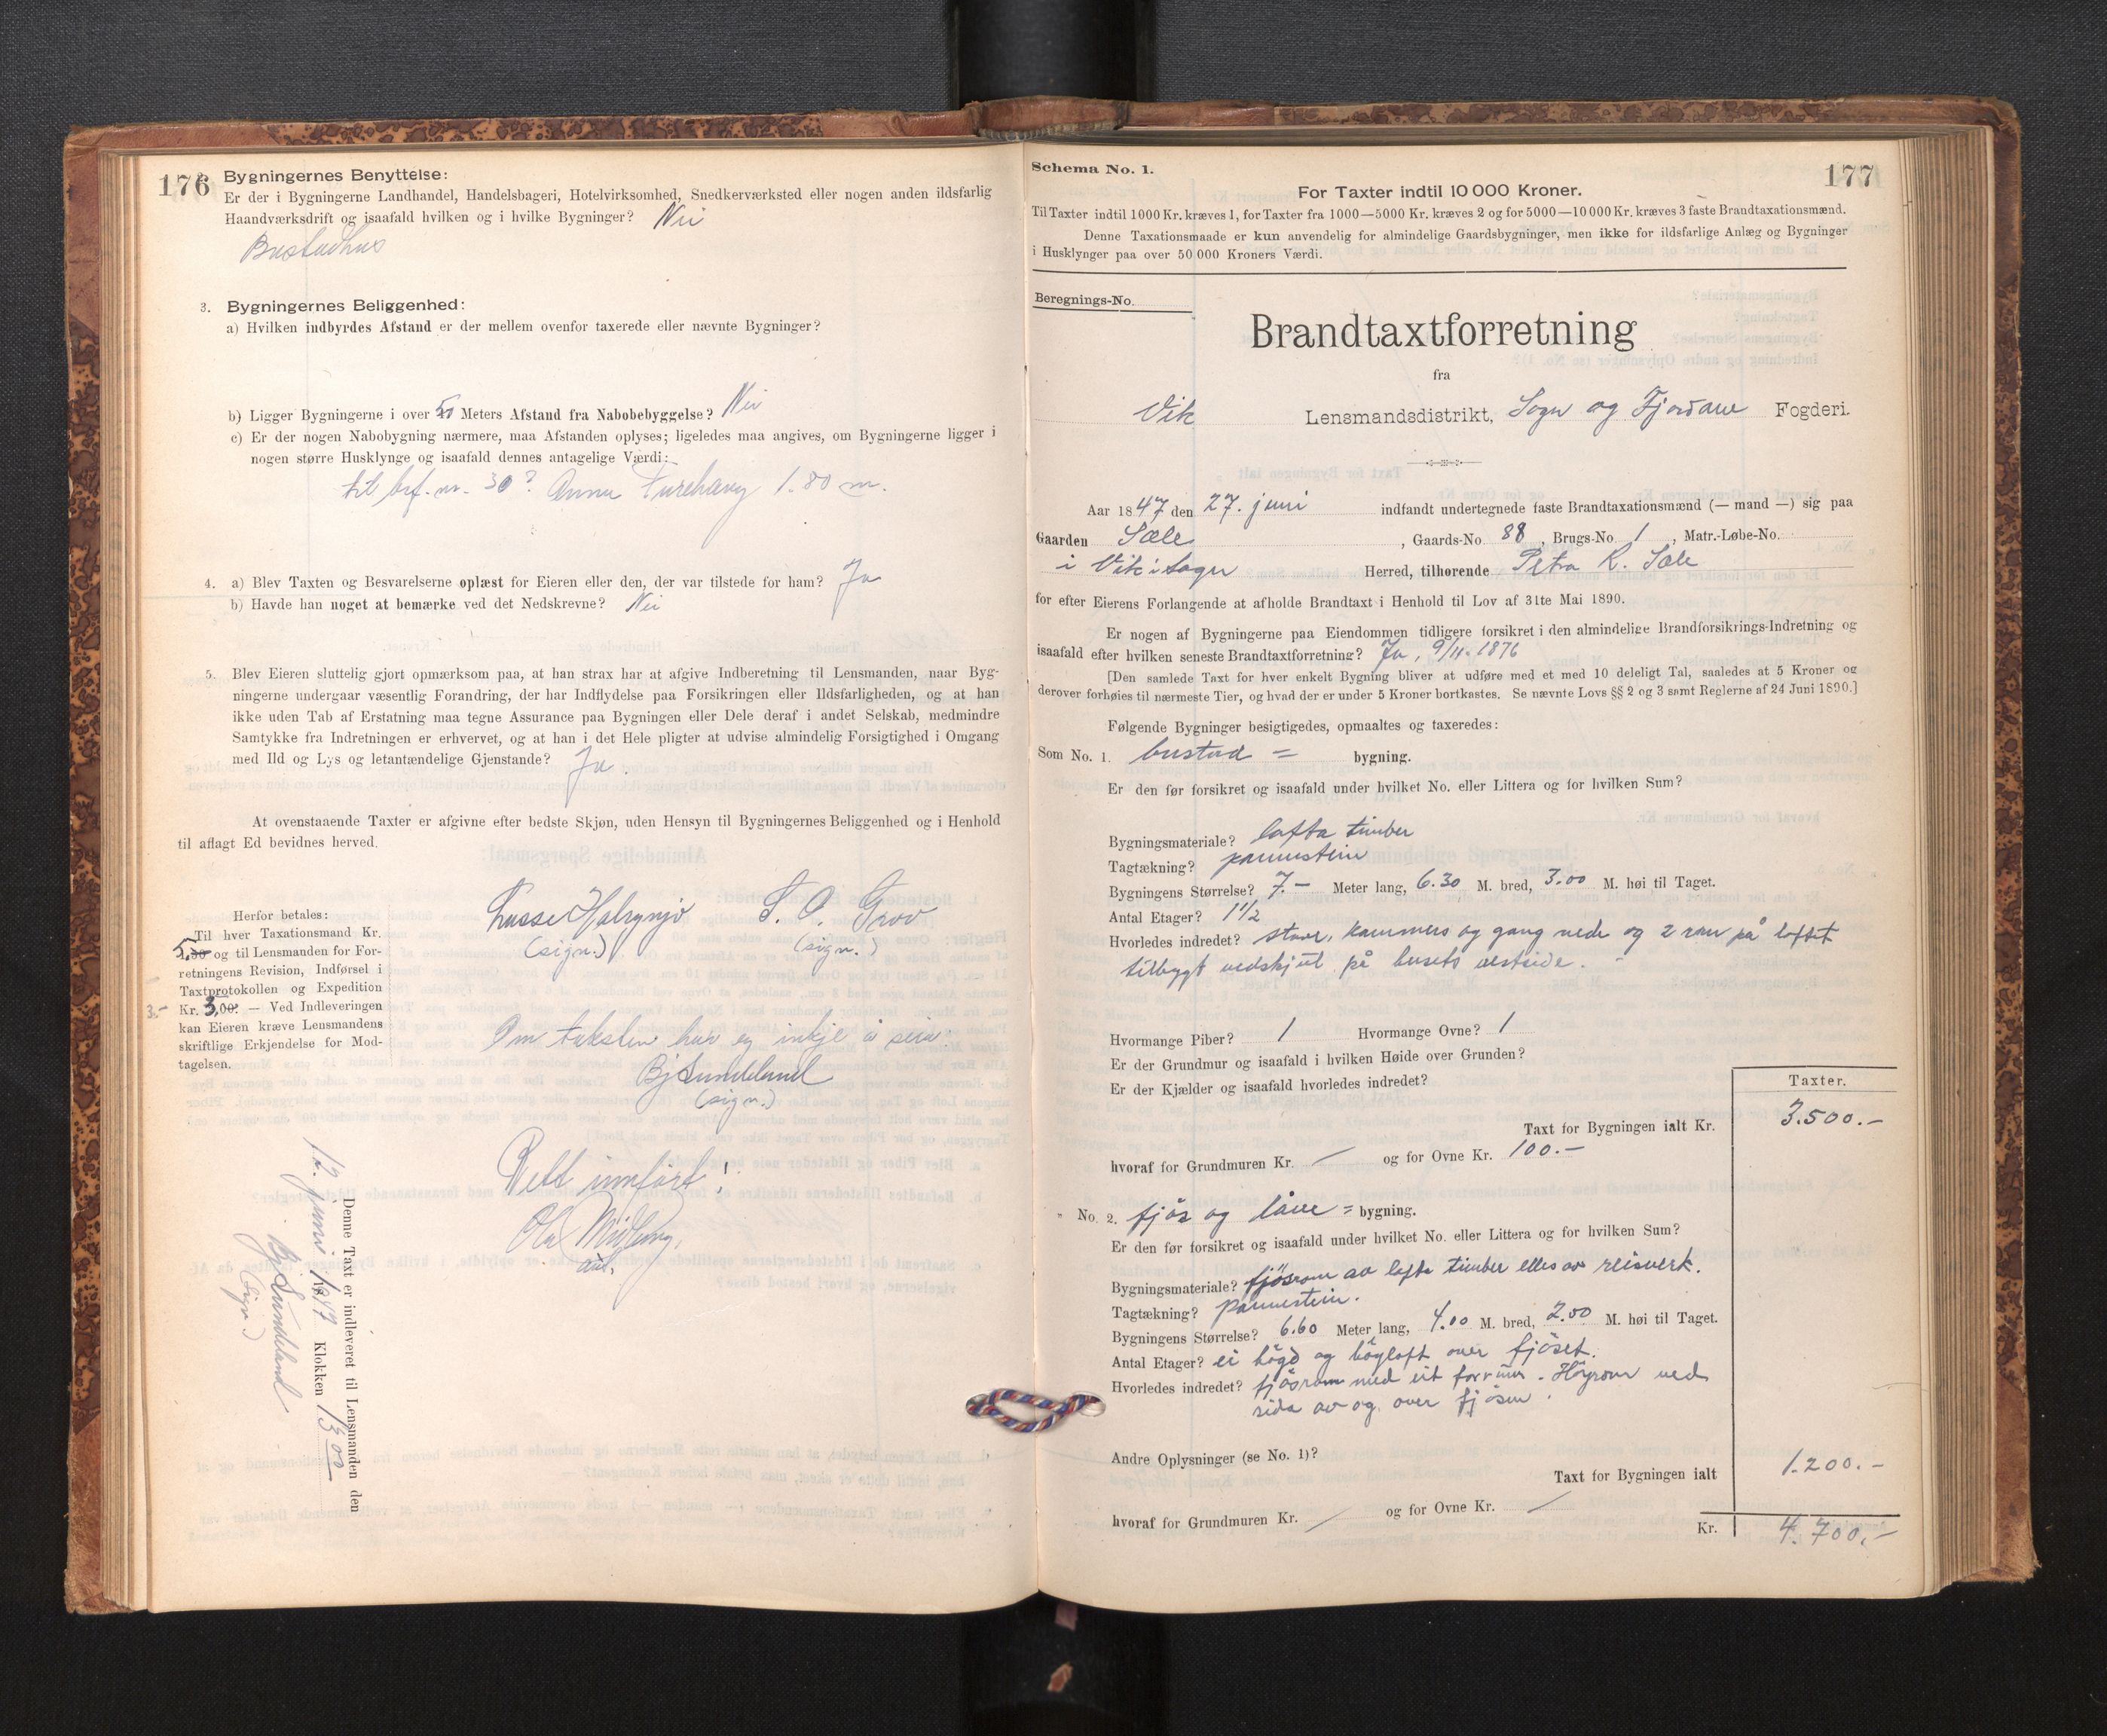 176
Bygningernes Benyttelse:
Er der i Bygningerne Landhandel, Handelsbageri, Hotelvirksomhed, Snedkerværksted eller nogen anden ildsfarlig
Haandværksdrift og isaafald hvilken og i hvilke Bygninger? Nei
Bustadhus
3. Bygningernes Beliggenhed:
a) Hvilken indbyrdes Afstand er der mellem ovenfor taxerede eller nævnte Bygninger?
b) Ligger Bygningerne i over 50 Meters Afstand fra Nabobebyggelse? Nei
c) Er der nogen Nabobygning nærmere, maa Afstanden oplyses; ligeledes maa angives, om Bygningerne ligger i
nogen større Husklynge og isaafald dennes antagelige Værdi:
til brf. nr. 30? Anna Turehaug 1.80 m.
4. a) Blev Taxten og Besvarelserne oplæst for Eieren eller den, der var tilstede for ham? Ja
b) Havde han noget at bemærke ved det Nedskrevne? Nei
5. Blev Eieren sluttelig gjort opmærksom paa, at han strax har at afgive Indberetning til Lensmanden, naar Byg-
ningerne undergaar væsentlig Forandring, der har Indflydelse paa Forsikringen eller Ildsfarligheden, og at han
ikke uden Tab af Erstatning maa tegne Assurance paa Bygningen eller Dele deraf i andet Selskab, medmindre
Samtykke fra Indretningen er erhvervet, og at han i det Hele pligter at udvise almindelig Forsigtighed i Omgang
med Ild og Lys og letantændelige Gjenstande? Ja.
At ovenstaaende Taxter er afgivne efter bedste Skjøn, uden Hensyn til Bygningernes Beliggenhed og i Henhold
til aflagt Ed bevidnes herved.
Lasse S. O. Grov
(sign.) (sign.)
Herfor betales:
Til hver Taxationsmand Kr.
5,00 og til Lensmanden for For-
retningens Revision, Indførsel i
Taxtprotokollen og Expedition
3.- Kr. 3,00. — Ved Indleveringen
kan Eieren kræve Lensmandens
skriftlige Erkjendelse for Mod-
tagelsen.
Om taksten har eg inkje å seia.
Bj Sundeland
(sign.)
Rett innført!
Ola
Denne Taxt er indleveret til Lensmanden den
12. juni 1947 Klokken 13.00
Bj Sundeland
(sign.)
Schema No. 1.
177
For Taxter indtil 10 000 Kroner.
Til Taxter indtil 1000 Kr. kræves 1, for Taxter fra 1000—5000 Kr. kræves 2 og for 5000—10 000 Kr. kræves 3 faste Brandtaxationsmænd.
Denne Taxationsmaade er kun anvendelig for almindelige Gaardsbygninger, men ikke for ildsfarlige Anlæg og Bygninger
i Husklynger paa over 50 000 Kroners Værdi.
Beregnings-No.
Brandtaxtforretning
fra
Vik Lensmandsdistrikt, Sogn og Fjordane Fogderi.
Aar 1847 den 27. juni indfandt undertegnede faste Brandtaxationsmænd (— mand —) sig paa
Gaarden Sæle, Gaards-No. 88, Brugs-No. 1, Matr.-Løbe-No.
i Vik i Sogn Herred, tilhørende Petra R. Sæle
for efter Eierens Forlangende at afholde Brandtaxt i Henhold til Lov af 31te Mai 1890.
Er nogen af Bygningerne paa Eiendommen tidligere forsikret i den almindelige Brandforsikrings-Indretning og
isaafald efter hvilken seneste Brandtaxtforretning? Ja, 9/11. 1876
[Den samlede Taxt for hver enkelt Bygning bliver at udføre med et med 10 deleligt Tal, saaledes at 5 Kroner og
derover forhøies til nærmeste Tier, og hvad der er under 5 Kroner bortkastes. Se nævnte Lovs §§ 2 og 3 samt Reglerne af 24 Juni 1890.]
Følgende Bygninger besigtigedes, opmaaltes og taxeredes:
Som No. 1. bustad = bygning.
Er den før forsikret og isaafald under hvilket No. eller Littera og for hvilken Sum?
Bygningsmateriale? lafta timber
Tagtækning? pannestein
Bygningens Størrelse? 7.— Meter lang, 6.30 M. bred, 3.00 M. høi til Taget.
Antal Etager? 1 1/2
Hvorledes indredet? stove, kammers og gang nede og 2 rom på loftet
tilbygt vedskjul på husets
Hvormange Piber? 1 Hvormange Ovne? 1
Er der Grundmur og isaafald i hvilken Høide over Grunden?
Er der Kjælder og isaafald hvorledes indredet?
Taxter.
Taxt for Bygningen ialt Kr. 3.500.-
hvoraf for Grundmuren Kr. — og for Ovne Kr. 100.-
" No. 2. fjøs og låve = bygning.
Er den før forsikret og isaafald under hvilket No. eller Littera og for hvilken Sum?
Bygningsmateriale? fjøsrom av lafta timber elles av reisverk.
Tagtækning? pannestein.
Bygningens Størrelse? 6.60 Meter lang, 4.00 M. bred, 2.00 M. høi til Taget.
Antal Etager? ei høgd og høyloft over fjøset.
Hvorledes indredet? fjøsrom med eit forrum. Høyrom ved
sida av og over fjøsen.
Andre Oplysninger (se No. 1)?
Taxt for Bygningen ialt 1.200.-
hvoraf for Grundmuren Kr. — og for Ovne Kr. —
Kr. 4.700.-